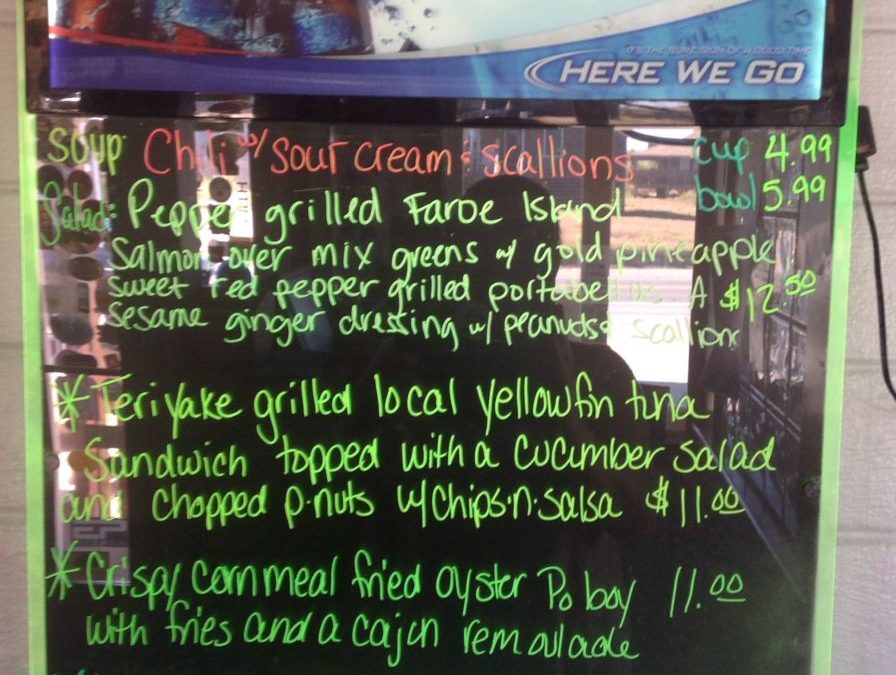 IT'S THE SURE SIGN OF A GOOD TIME
HERE WE GO
Soup: Chili w/ sour cream & scallions cup 4.99
bowl 5.99
Salad: Pepper grilled Faroe Island
Salmon over mix greens w/ gold pineapple,
sweet red pepper grilled portabellas. A $12.50
Sesame ginger dressing w/ peanuds & scallions
* Teriyake grilled local yellowfin tuna
Sandwich topped with a cucumber salad
and chopped p-nuts w/ chips·n·salsa $11.00
* Crispy cornmeal fried oyster Po boy 11.00
with fries and a cajun remoulade